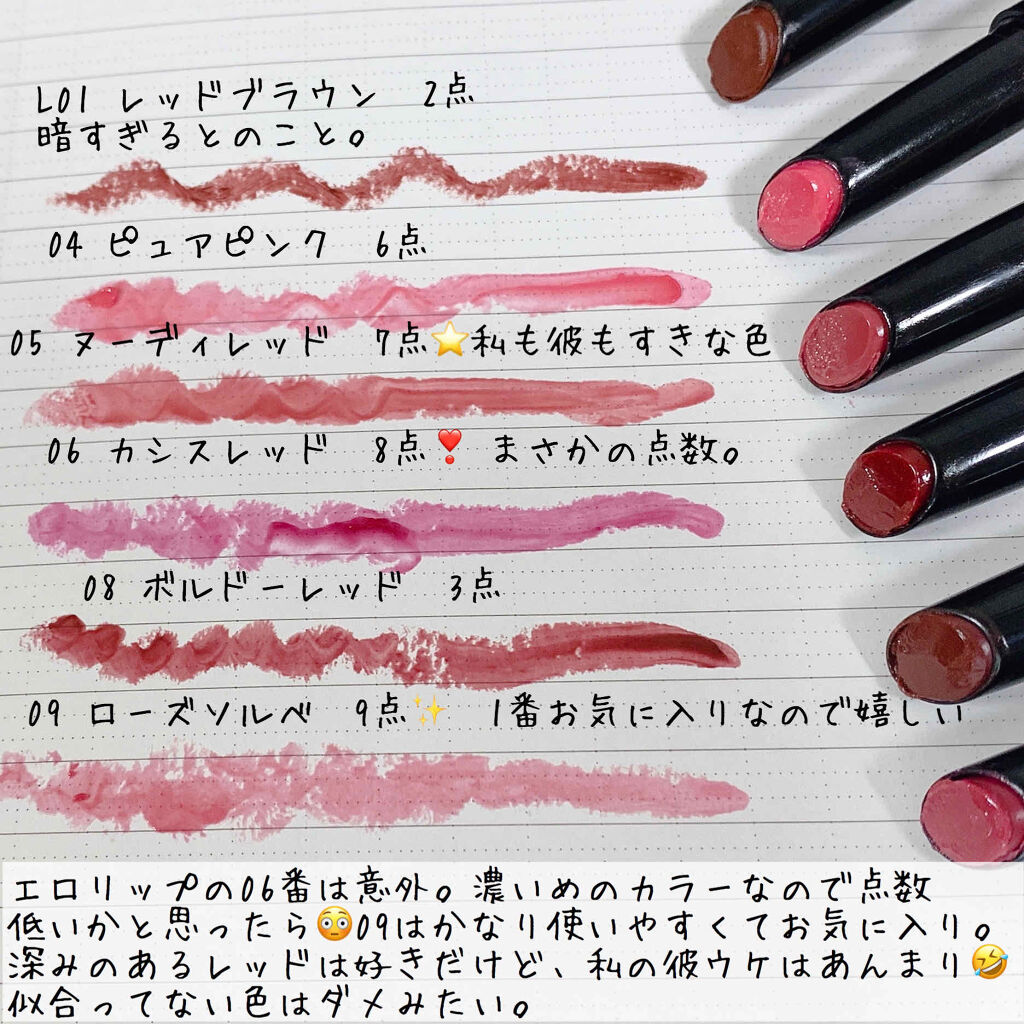 L01 レッドブラウン 2点
暗すぎるとのこと。
04 ピュアピンク 6点
05 ヌーディレッド 7点⭐私も彼もすきな色
06 カシスレッド 8点❣️ まさかの点数。
08 ボルドーレッド 3点
09 ローズソルベ 9点✨ 1番お気に入りなので嬉しい
エロリップの06番は意外。濃いめのカラーなので点数
低いかと思ったら😳09はかなり使いやすくてお気に入り。
深みのあるレッドは好きだけど、私の彼ウケはあんまり🤣
似合ってない色はダメみたい。